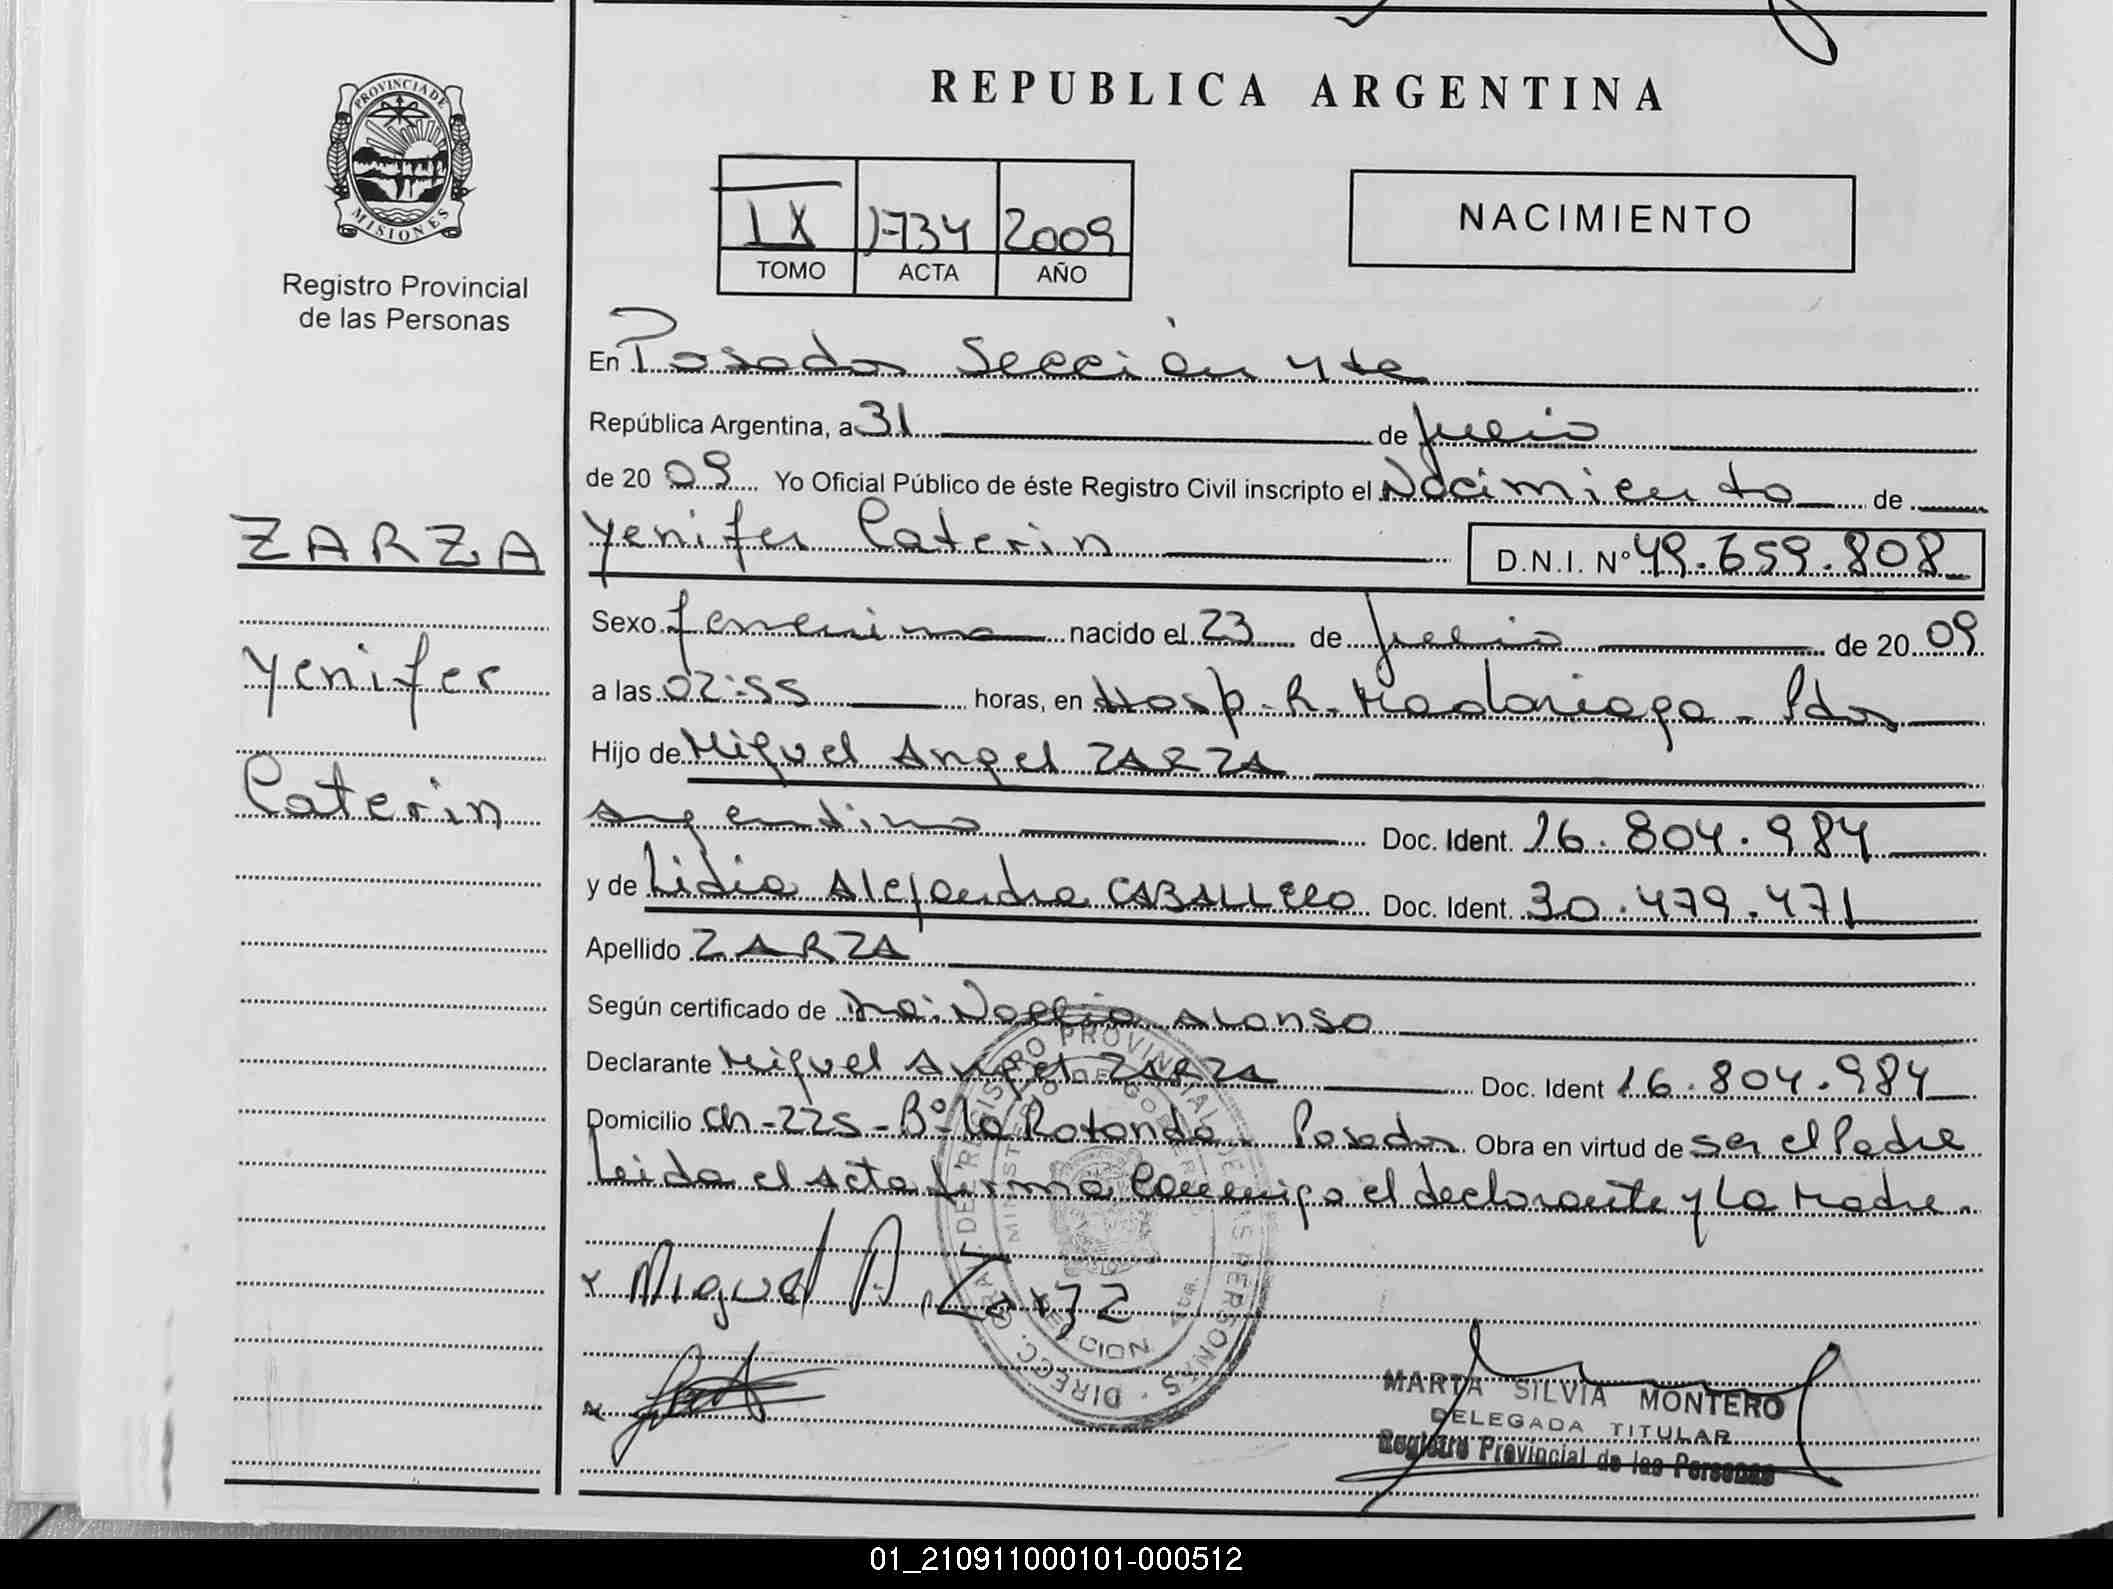 REPUBLICA ARGENTINA
PROVINCIA DE
MISIONES
Registro Provincial
de las Personas
IX 1734 2009
TOMO ACTA AÑO
NACIMIENTO
En Posadas Sección 4ta
República Argentina, a 31 de Julio
de 20 09 Yo Oficial Público de éste Registro Civil inscripto el Nacimiento de
ZARZA
Yenifer
Caterin
Yenifer Caterin D.N.I. Nº 49.659.808
Sexo femenino nacido el 23 de Julio de 20 09
a las 02:55 horas, en Hosp. R. Madariaga - Pdas
Hijo de Miguel Angel ZARZA
Argentino Doc. Ident. 16.804.984
y de Lidia Alejandra CABALLERO Doc. Ident. 30.479.471
Apellido ZARZA
Según certificado de Dra: Noelia Alonso
Declarante Miguel Angel ZARZA Doc. Ident 16.804.984
Domicilio Ch-225-Bº La Rotonda - Posadas Obra en virtud de ser el Padre
Leida el Acta firma conmigo el declarante y La Madre.
Miguel A. Zarza
DIRECC. GRAL. DE REGISTRO PROVINCIAL DE LAS PERSONAS
MINISTERIO DE GOBIERNO
MARTA SILVIA MONTERO
DELEGADA TITULAR
Registro Provincial de las Personas
01_210911000101-000512